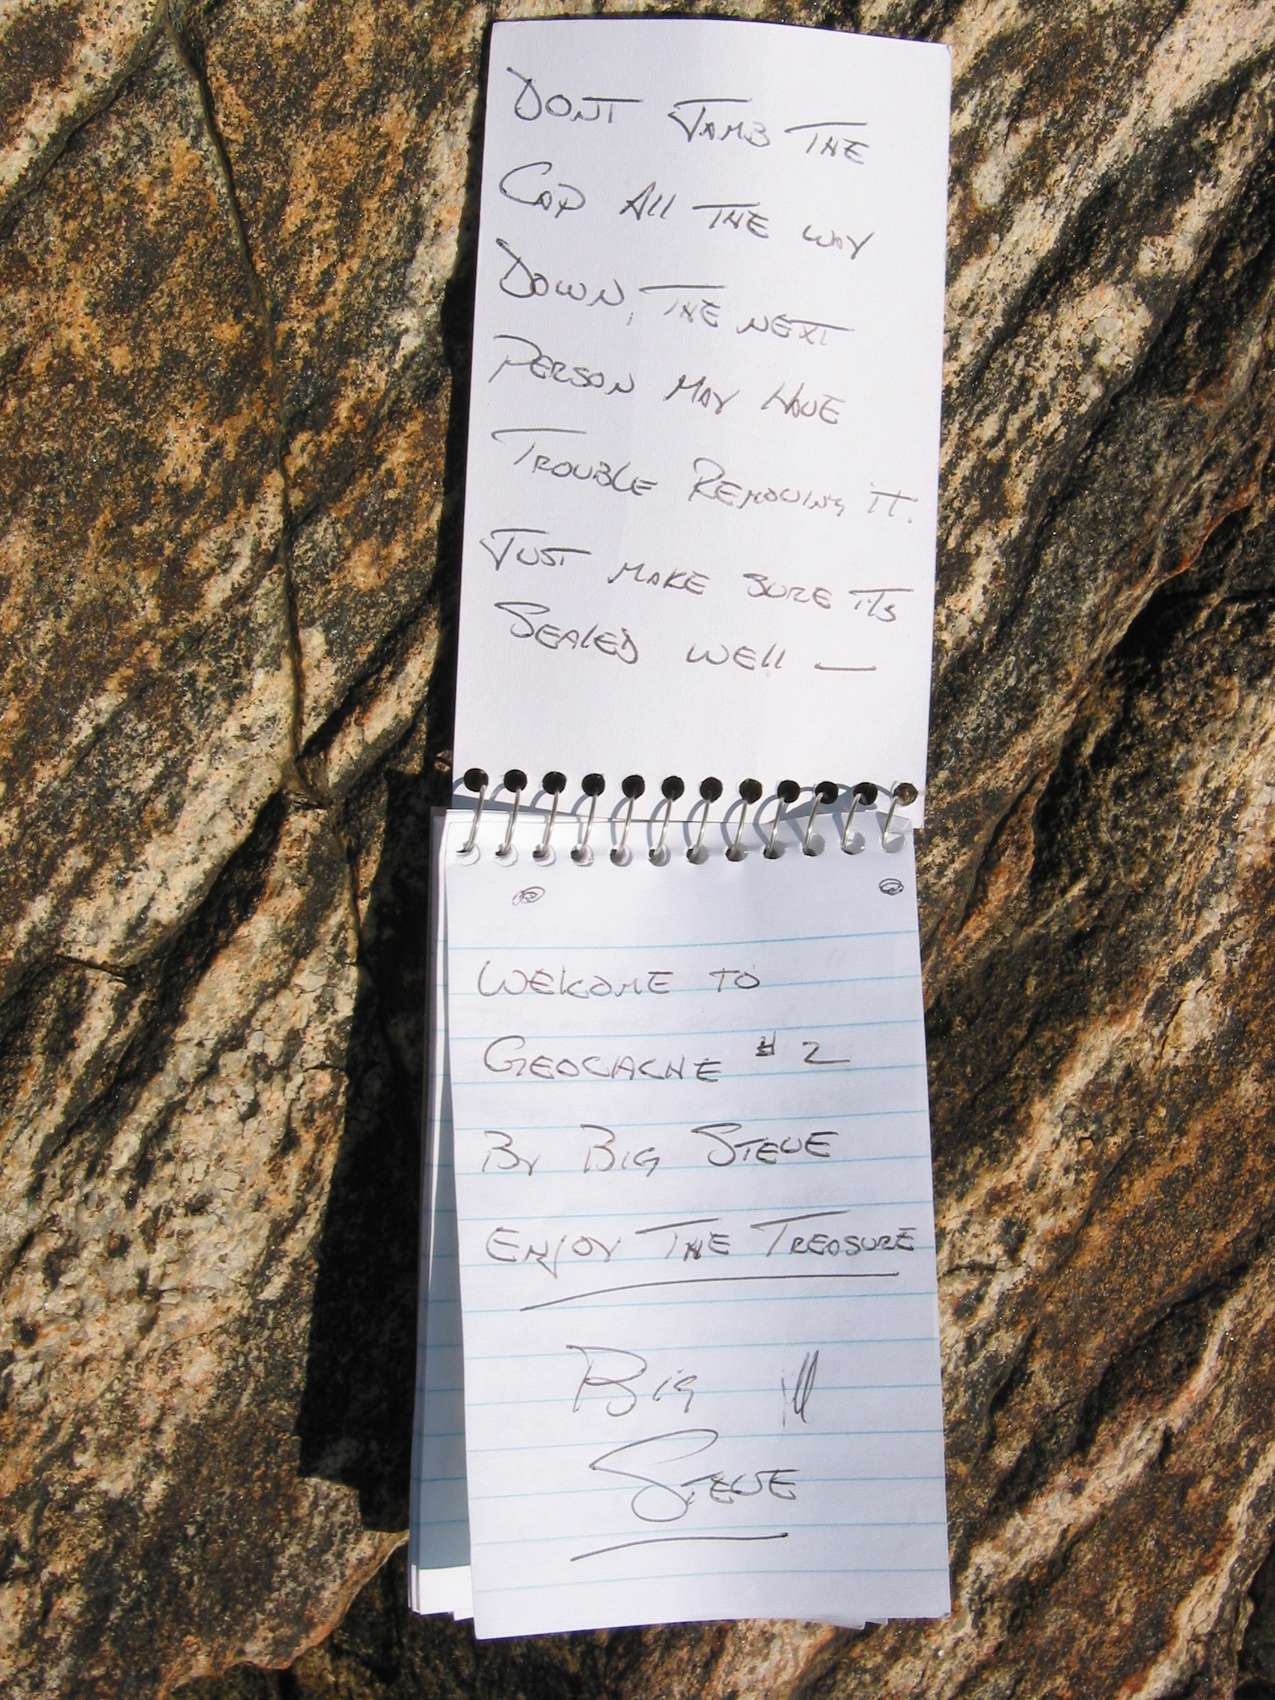 DONT JAMB THE
CAP All THE WAY
DOWN, THE NEXT
PERSON MAY HAVE
TROUBLE REMOVING IT.
JUST MAKE SURE ITS
SEALED WEll —
WELCOME TO
GEOCACHE # 2
BY BIG STEVE
ENJOY THE TREASURE
BIG
STEVE